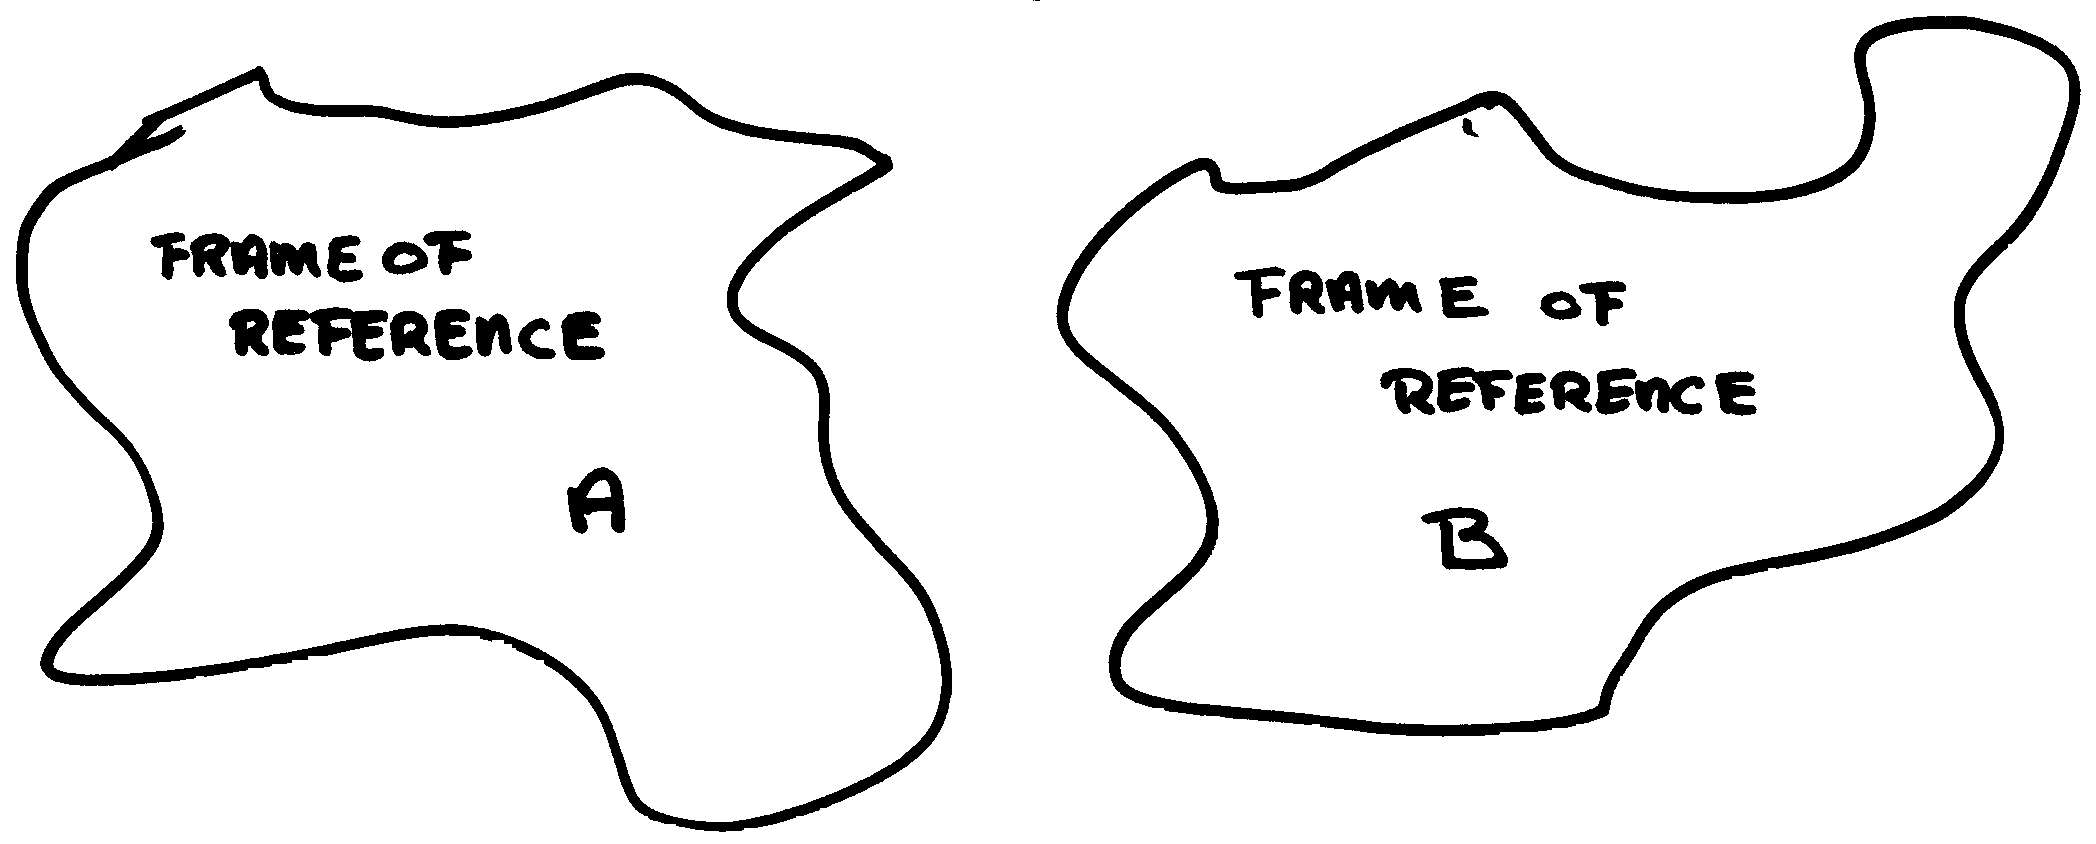 FRAME OF
REFERENCE
A
FRAME OF
REFERENCE
B